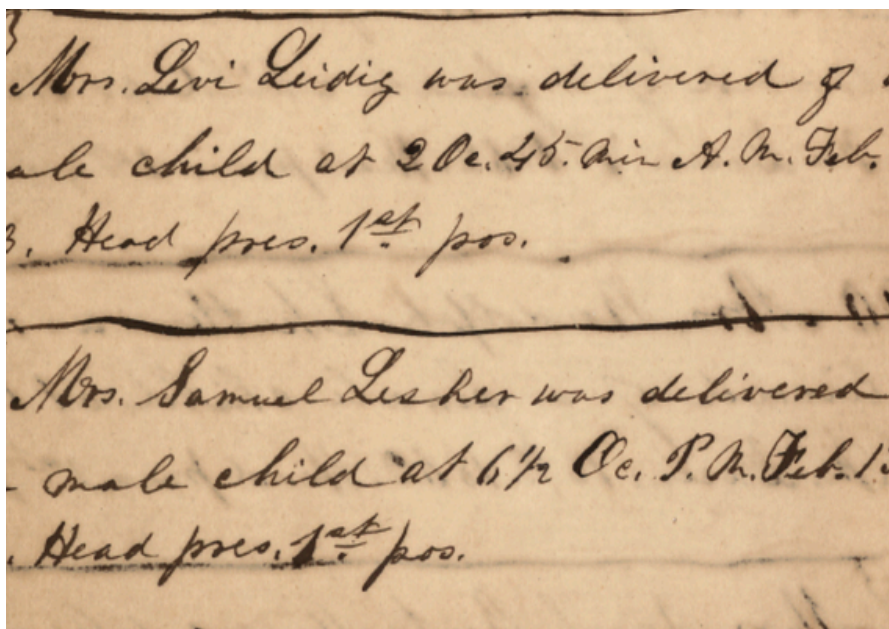 Mrs. Levi Leidig was delivered of
ale child at 2 Oc. 45. Min A. M. Feb.
3. Head pres. 1st pos.
Mrs. Samuel Lesher was delivered
male child at 6 1/2 Oc. P. M. Feb. 1
. Head pres. 1st pos.